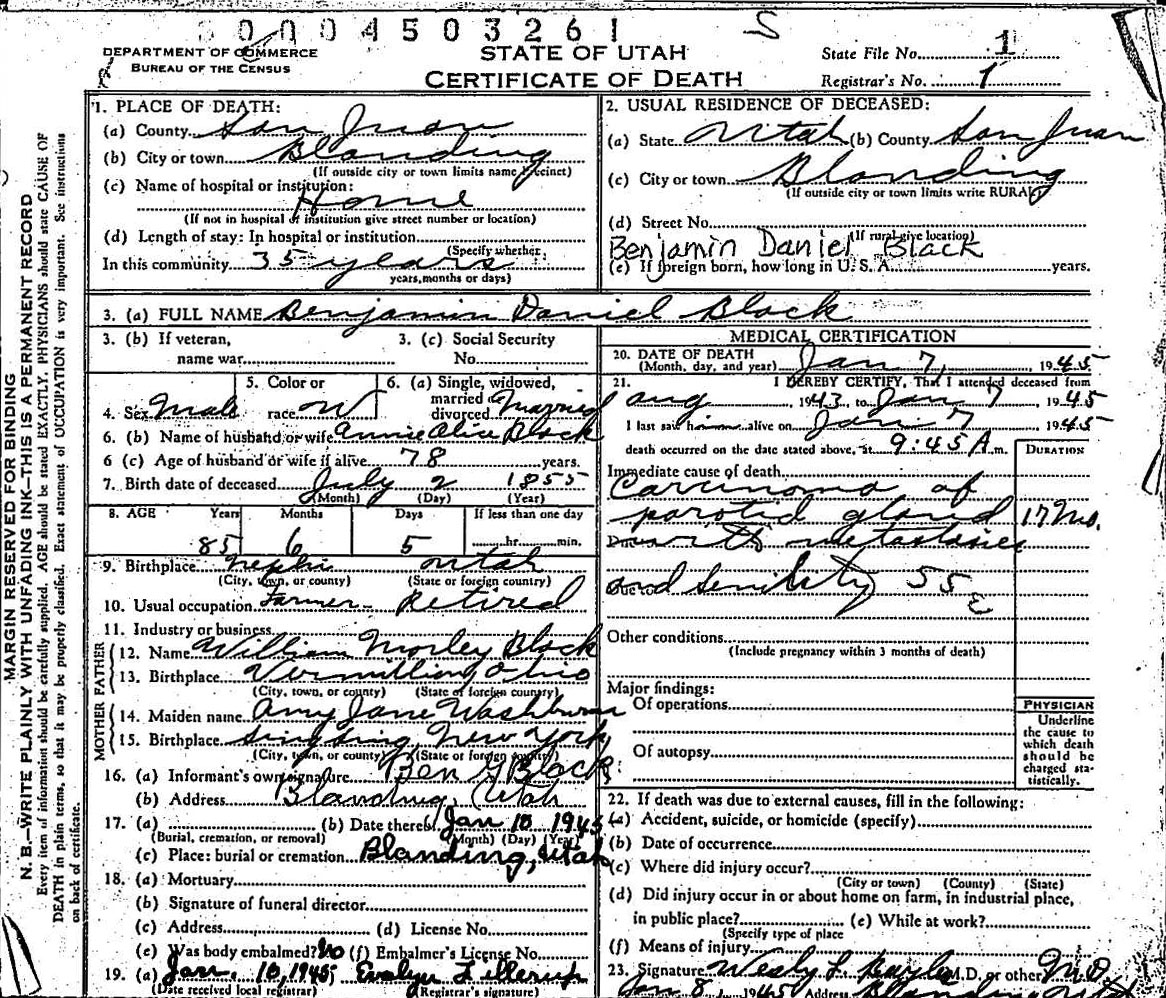 0004503261 S
DEPARTMENT OF COMMERCE
BUREAU OF THE CENSUS
STATE OF UTAH
CERTIFICATE OF DEATH
State File No. 1
Registrar's No. 1
MARGIN RESERVED FOR BINDING
N. B.—WRITE PLAINLY WITH UNFADING INK—THIS IS A PERMANENT RECORD
Every item of information should be carefully supplied. AGE should be stated EXACTLY. PHYSICIANS should state CAUSE OF
DEATH in plain terms, so that it may be properly classified. Exact statement of OCCUPATION is very important. See instructions
on back of certificate.
1. PLACE OF DEATH:
(a) County San Juan
(b) City or town Blanding
(If outside city or town limits name Precinct)
(c) Name of hospital or institution:
Home
(If not in hospital or institution give street number or location)
(d) Length of stay: In hospital or institution
(Specify whether
In this community 35 years
years, months or days)
2. USUAL RESIDENCE OF DECEASED:
(a) State Utah (b) County San Juan
(c) City or town Blanding
(If outside city or town limits write RURAL)
(d) Street No.
(If rural give location)
Benjamin Daniel Black
(e) If foreign born, how long in U. S. A. years.
3. (a) FULL NAME Benjamin Daniel Black
3. (b) If veteran,
name war
3. (c) Social Security
No.
4. Sex Male
5. Color or
race W
6. (a) Single, widowed,
married or
divorced Married
6. (b) Name of husband or wife Annie Alice Black
6 (c) Age of husband or wife if alive 78 years.
7. Birth date of deceased July 2 1855
(Month) (Day) (Year)
8. AGE Years Months Days If less than one day
85 6 5 hr. min.
9. Birthplace Nephi Utah
(City, town, or county) (State or foreign country)
10. Usual occupation Farmer - Retired
11. Industry or business
FATHER
12. Name William Morley Black
13. Birthplace Vermillion Ohio
(City, town, or county) (State or foreign country)
MOTHER
14. Maiden name Amy Jane Washburn
15. Birthplace Sing Sing, New York,
(City, town, or county) (State or foreign country)
16. (a) Informant's own signature Ben Black
(b) Address Blanding, Utah
17. (a) (b) Date thereof Jan 10 1945
(Burial, cremation, or removal) (Month) (Day) (Year)
(c) Place: burial or cremation Blanding, Utah
18. (a) Mortuary
(b) Signature of funeral director
(c) Address (d) License No.
(e) Was body embalmed? No (f) Embalmer's License No.
19. (a) Jan. 10, 1945; Evelyn Lillerup
(Date received local registrar) (Registrar's signature)
MEDICAL CERTIFICATION
20. DATE OF DEATH
(Month, day, and year) Jan 7, 1945
21. I HEREBY CERTIFY, That I attended deceased from
Aug 1943, to Jan 7 1945
I last saw him alive on Jan 7 1945
death occurred on the date stated above, at 9:45 A. m.
DURATION
Immediate cause of death
Carcinoma of
parotid gland 17 Mo.
Due to with metastasies
Due to and Senility 55 E
Other conditions
(Include pregnancy within 3 months of death)
Major findings:
Of operations
Of autopsy
PHYSICIAN
Underline
the cause to
which death
should be
charged sta-
tistically.
22. If death was due to external causes, fill in the following:
(a) Accident, suicide, or homicide (specify)
(b) Date of occurrence
(c) Where did injury occur?
(City or town) (County) (State)
(d) Did injury occur in or about home on farm, in industrial place,
in public place? (e) While at work?
(Specify type of place
(f) Means of injury
23. Signature Wesly L. Bayles M.D. or other M.D.
Jan 8, 1945 Address Blanding